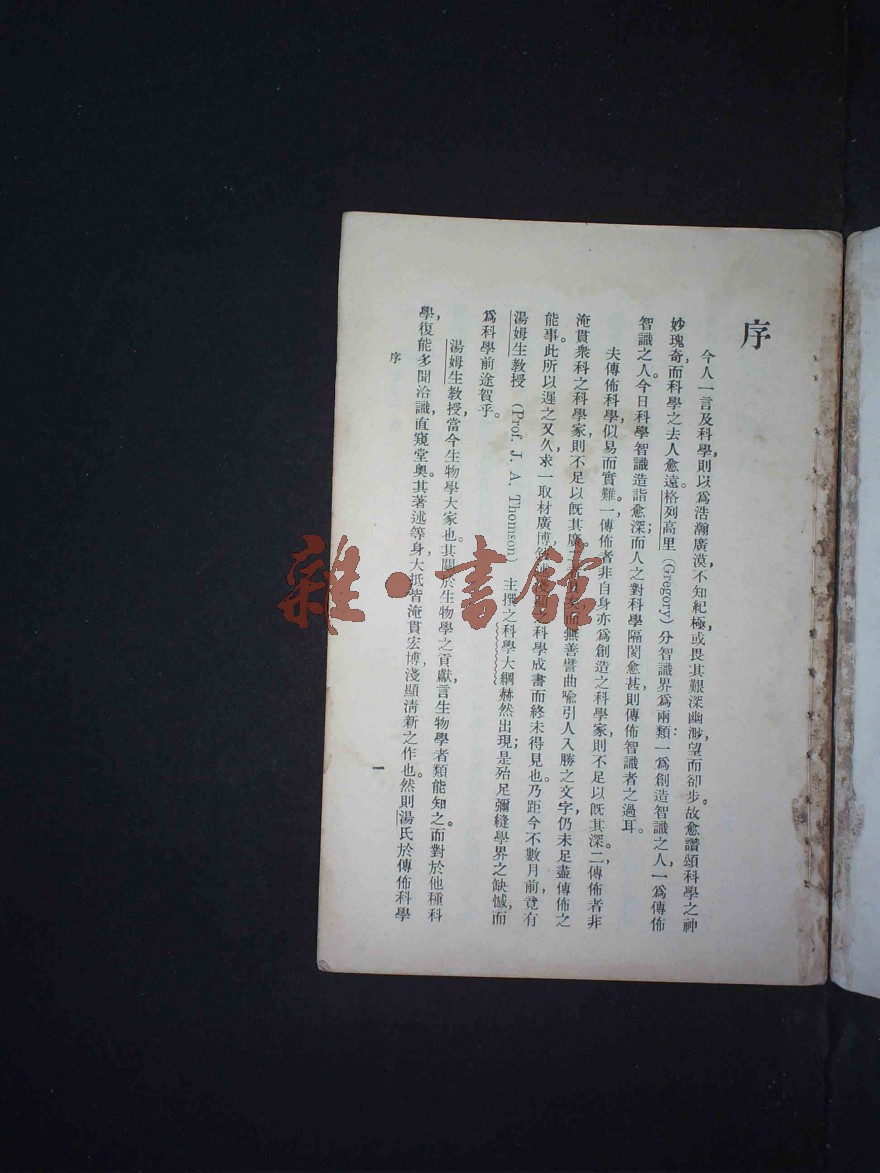 序
今人一言及科學，則以爲浩瀚廣漠，不知紀極，或畏其艱深幽渺，望而卻步。故愈讚頌科學之神
妙瑰奇，而科學之去人愈遠。格列高里（Gregory）分智識界爲兩類：一爲創造智識之人，一爲傳佈
智識之人。今日科學智識造詣愈深，而人之對科學隔閡愈甚，則傳佈智識者之過耳。
夫傳佈科學，似易而實難。一、傳佈者非自身亦爲創造之科學家，則不足以旣其深。二、傳佈者非
淹貫衆科之科學家，則不足以旣其廣。而無善譬曲喩引人入勝之文字，仍未足盡傳佈之
能事。此所以遲之又久，求一取材廣博之科學成書而終未得見也。乃距今不數月前，竟有
湯姆生教授（Prof. J. A. Thomson）主撰之科學大綱赫然出現；是殆足彌縫學界之缺憾，而
爲科學前途賀乎。
湯姆生教授，當今生物學大家也。其關於生物學之貢獻，言生物學者類能知之。而對於他種科
學，復能多聞洽識，直窺堂奧。其著述等身，大抵皆淹貫宏博，淺顯淸新之作也。然則湯氏於傳佈科學
序
一
雜·書館